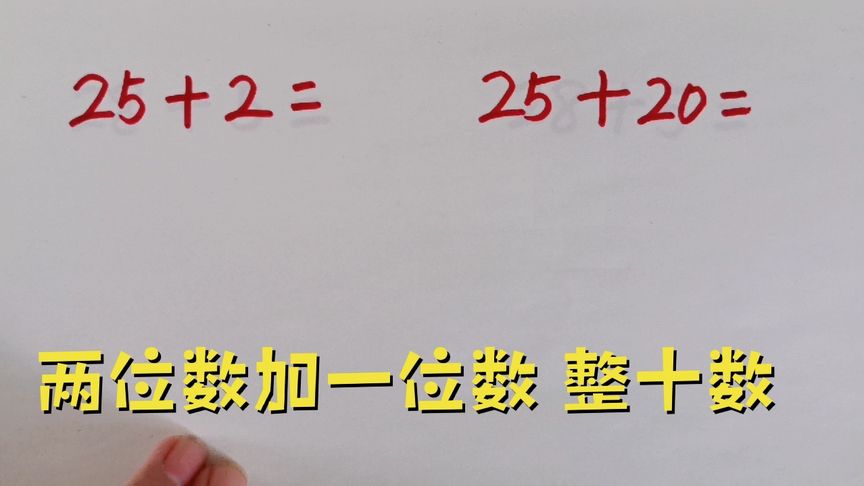 25+2=
25+20=
两位数加一位数 整十数